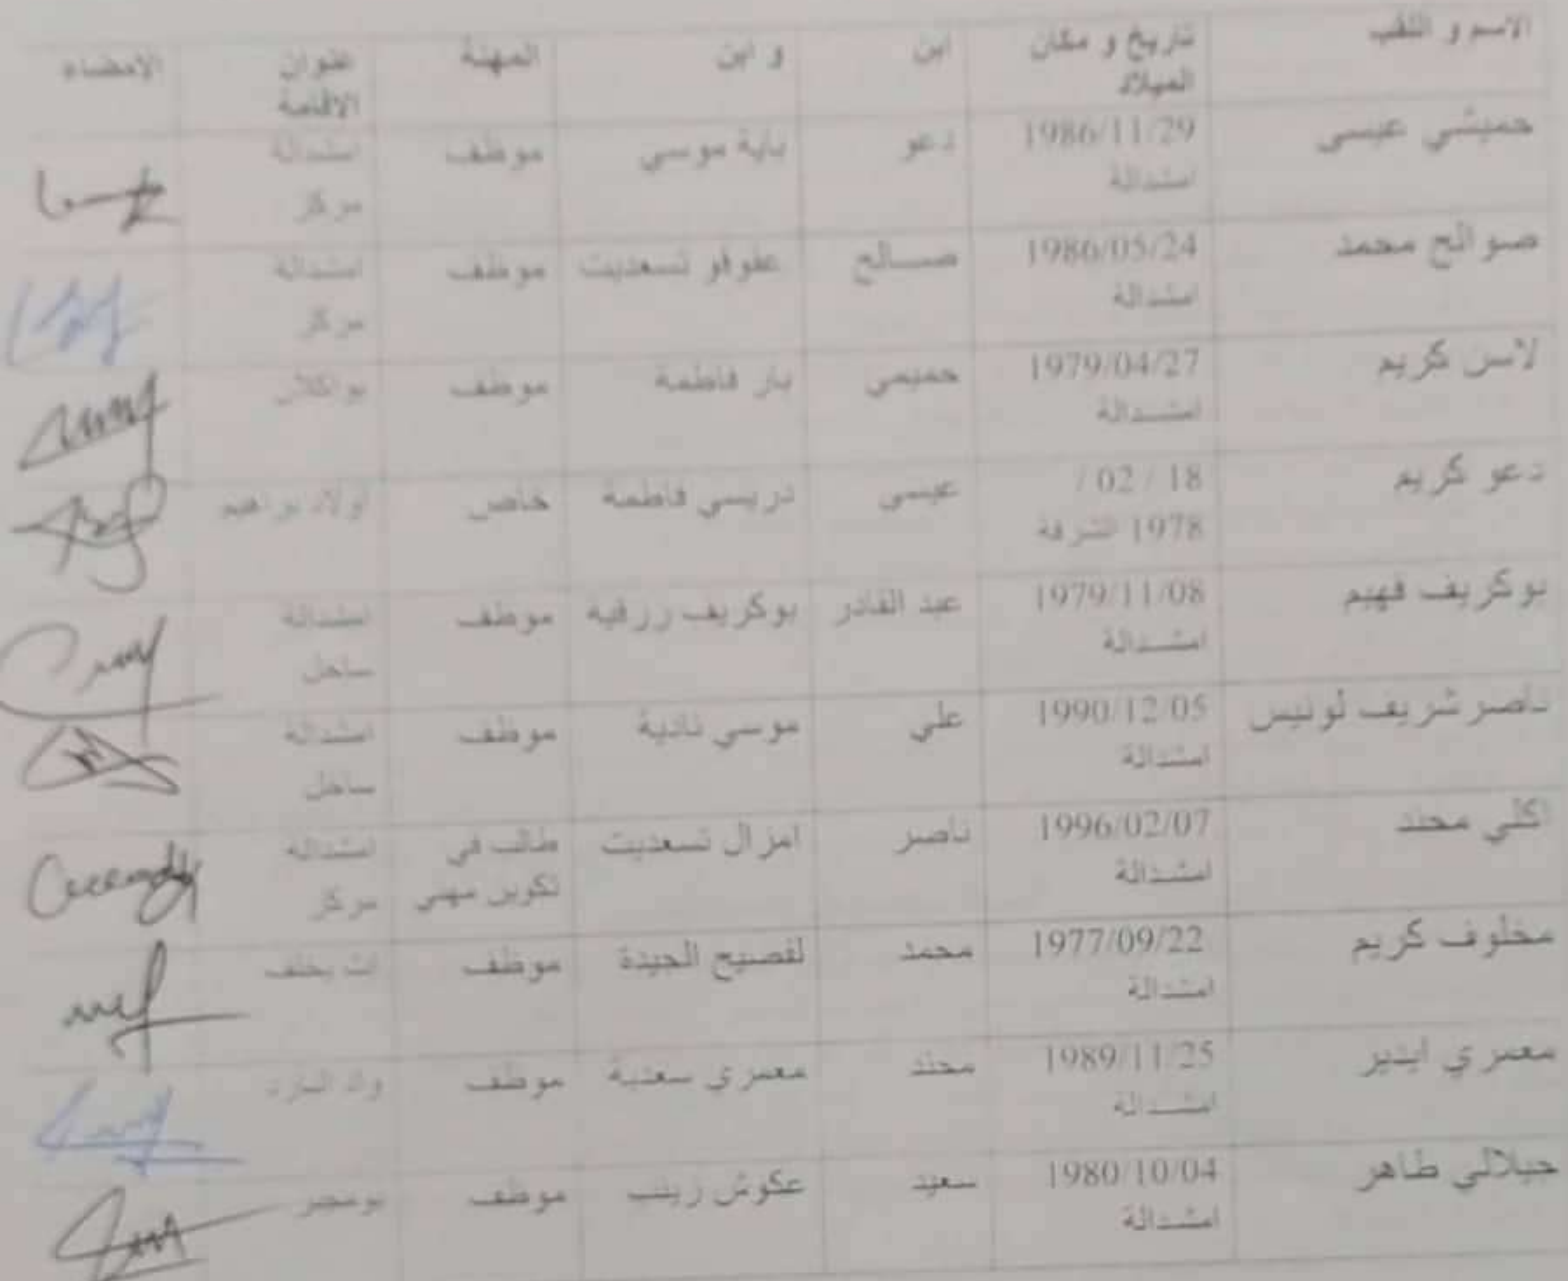 الاسم و اللقب تاريخ و مكان الميلاد ابن و ابن المهنة عنوان الاقامة الامضاء
حميشي عيسى 1986/11/29 امشدالة دعو باية موسي موظف امشدالة مركز
صوالح محمد 1986/05/24 امشدالة صالح علوقو تسعديت موظف امشدالة مركز
لاسن كريم 1979/04/27 امشدالة حميمي بار فاطمة موظف بواكلان
دعو كريم 18 / 02 / 1978 الشرفة عيسى دريسي فاطمة خاص اولاد براهيم
بوكريف فهيم 1979/11/08 امشدالة عبد القادر بوكريف زرقية موظف امشدالة ساحل
ناصر شريف لونيس 1990/12/05 امشدالة علي موسي نادية موظف امشدالة ساحل
اكلي محند 1996/02/07 امشدالة ناصر امزال تسعديت طالب في تكوين مهني امشدالة مركز
مخلوف كريم 1977/09/22 امشدالة محمد لفصيح الجيدة موظف ات يخلف
معمري ايدير 1989/11/25 امشدالة محند معمري سعدية موظف
جيلالي طاهر 1980/10/04 امشدالة سعيد عكوش زينب موظف